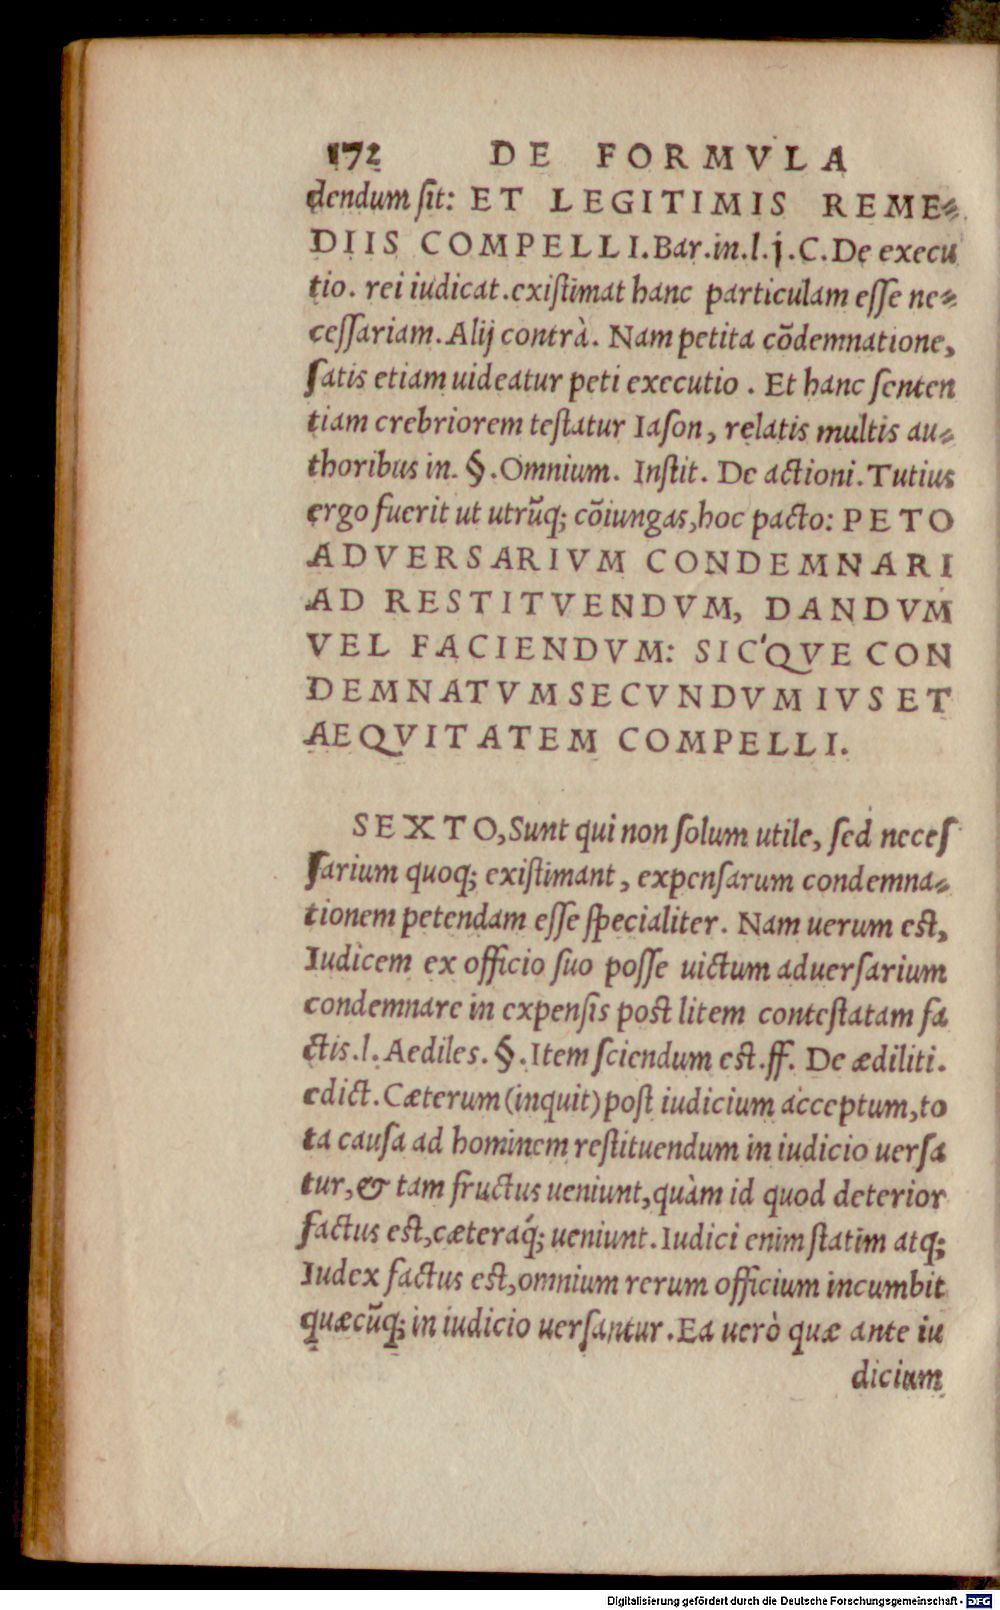 172 DE FORMVLA
dendum ſit: ET LEGITIMIS REME⸗
DIIS COMPELLI. Bar. in. l. j. C. De execu
tio. rei iudicat. exiſtimat hanc particulam eſſe ne⸗
ceſſariam. Alij contrà. Nam petita cõdemnatione,
ſatis etiam uideatur peti executio. Et hanc ſenten
tiam crebriorem teſtatur Iaſon, relatis multis au⸗
thoribus in. §. Omnium. Inſtit. De actioni. Tutius
ergo fuerit ut utrũq; cõiungas, hoc pacto: PETO
ADVERSARIVM CONDEMNARI
AD RESTITVENDVM, DANDVM
VEL FACIENDVM: SIC'QVE CON
DEMNATVM SECVNDVM IVS ET
AEQVITATEM COMPELLI.
SEXTO, Sunt qui non ſolum utile, ſed neceſ
ſarium quoq; exiſtimant, expenſarum condemna⸗
tionem petendam eſſe ſpecialiter. Nam uerum eſt,
Iudicem ex officio ſuo poſſe uictum aduerſarium
condemnare in expenſis poſt litem conteſtatam fa
ctis. l. Aediles. §. Item ſciendum eſt. ff. De ædiliti.
edict. Cæterum (inquit) poſt iudicium acceptum, to
ta cauſa ad hominem reſtituendum in iudicio uerſa
tur, & tam fructus ueniunt, quàm id quod deterior
factus eſt, cæteraq́; ueniunt. Iudici enim ſtatim atq;
Iudex factus eſt, omnium rerum officium incumbit
quæcũq; in iudicio uerſantur. Ea uerò quæ ante iu
dicium
Digitalisierung gefördert durch die Deutsche Forschungsgemeinschaft - DFG